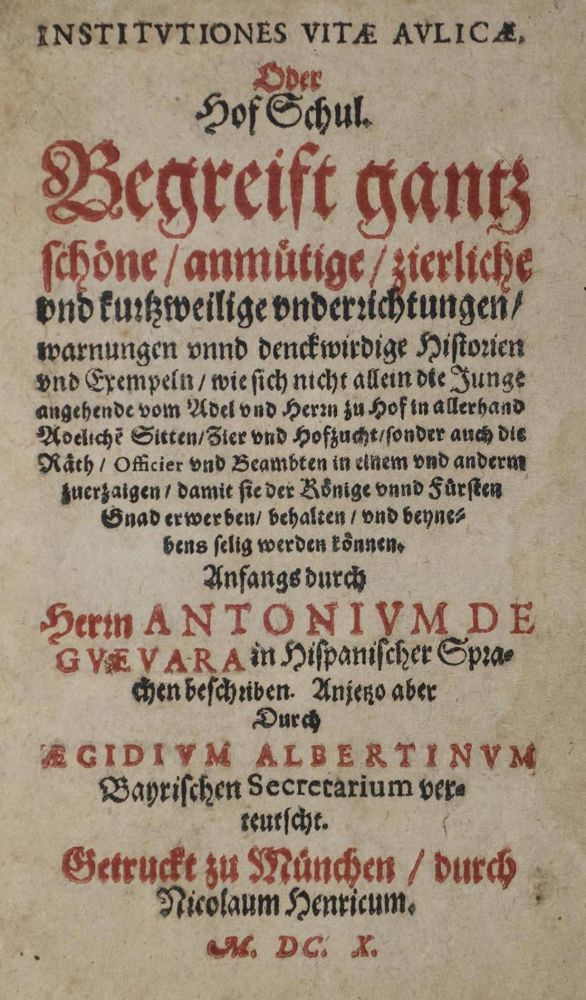 INSTITVTIONES VITÆ AVLICÆ,
Oder
Hof Schul.
Begreift gantz
schöne / anmůtige / zierliche
vnd kurtzweilige vnderrichtungen /
warnungen vnnd denckwirdige Historien
vnd Exempeln / wie sich nicht allein die Junge
angehende vom Adel vnd Herrn zu Hof in allerhand
Adelichē Sitten / Zier vnd Hofzucht / sonder auch die
Räth / Officier vnd Beambten in einem vnd anderm
zuerzaigen / damit sie der Könige vnnd Fürsten
Gnad erwerben / behalten / vnd beyne-
bens selig werden können.
Anfangs durch
Herrn ANTONIVM DE
GVÆVARA in Hispanischer Spra-
chen beschriben. Anjetzo aber
Durch
ÆGIDIVM ALBERTINVM
Bayrischen Secretarium ver-
teutscht.
Getruckt zu München / durch
Nicolaum Henricum.
M. DC. X.